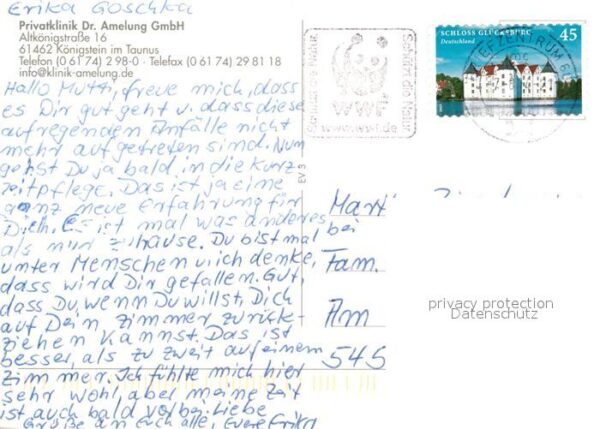 Erika Goschka
Privatklinik Dr. Amelung GmbH
Altkönigstraße 16
61462 Königstein im Taunus
Telefon (0 61 74) 2 98-0 · Telefax (0 61 74) 29 81 18
info@klinik-amelung.de
Hallo Mutti, freue mich, dass
es Dir gut geht u. dass diese
aufregenden Anfälle nicht
mehr aufgetreten sind. Nun
gehst Du ja bald in die Kurz-
zeitpflege. Das ist ja eine
ganz neue Erfahrung für
Dich. Es ist mal was anderes
als nur zuhause. Du bist mal bei
unter Menschen u. ich denke,
dass wird Dir gefallen. Gut,
dass Du, wenn Du willst, Dich
auf Dein Zimmer zurück-
ziehen kannst. Das ist
besser, als zu zweit auf einem
Zimmer. Ich fühlte mich hier
sehr wohl, aber meine Zeit
ist auch bald vorbei. Liebe
Grüße an Euch alle, Eure Erika
EV 3
WWF
www.wwf.de
Schützt die Natur
SCHLOSS GLÜCKSBURG
Deutschland
45
BRIEFZENTRUM
Marti
Fam.
Am
545
privacy protection
Datenschutz